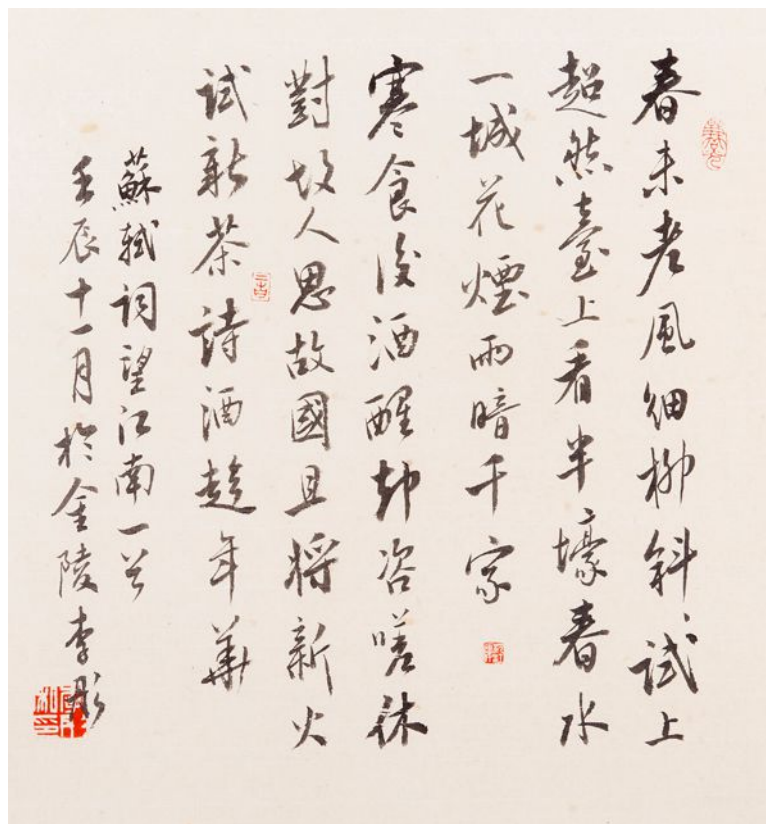 春未老風細柳斜、試上
超然臺上看半壕春水
一城花煙雨暗千家
寒食後酒醒却咨嗟休
對故人思故國且將新火
試新茶詩酒趁年華
蘇軾詞望江南一首
壬辰十一月於金陵李彤